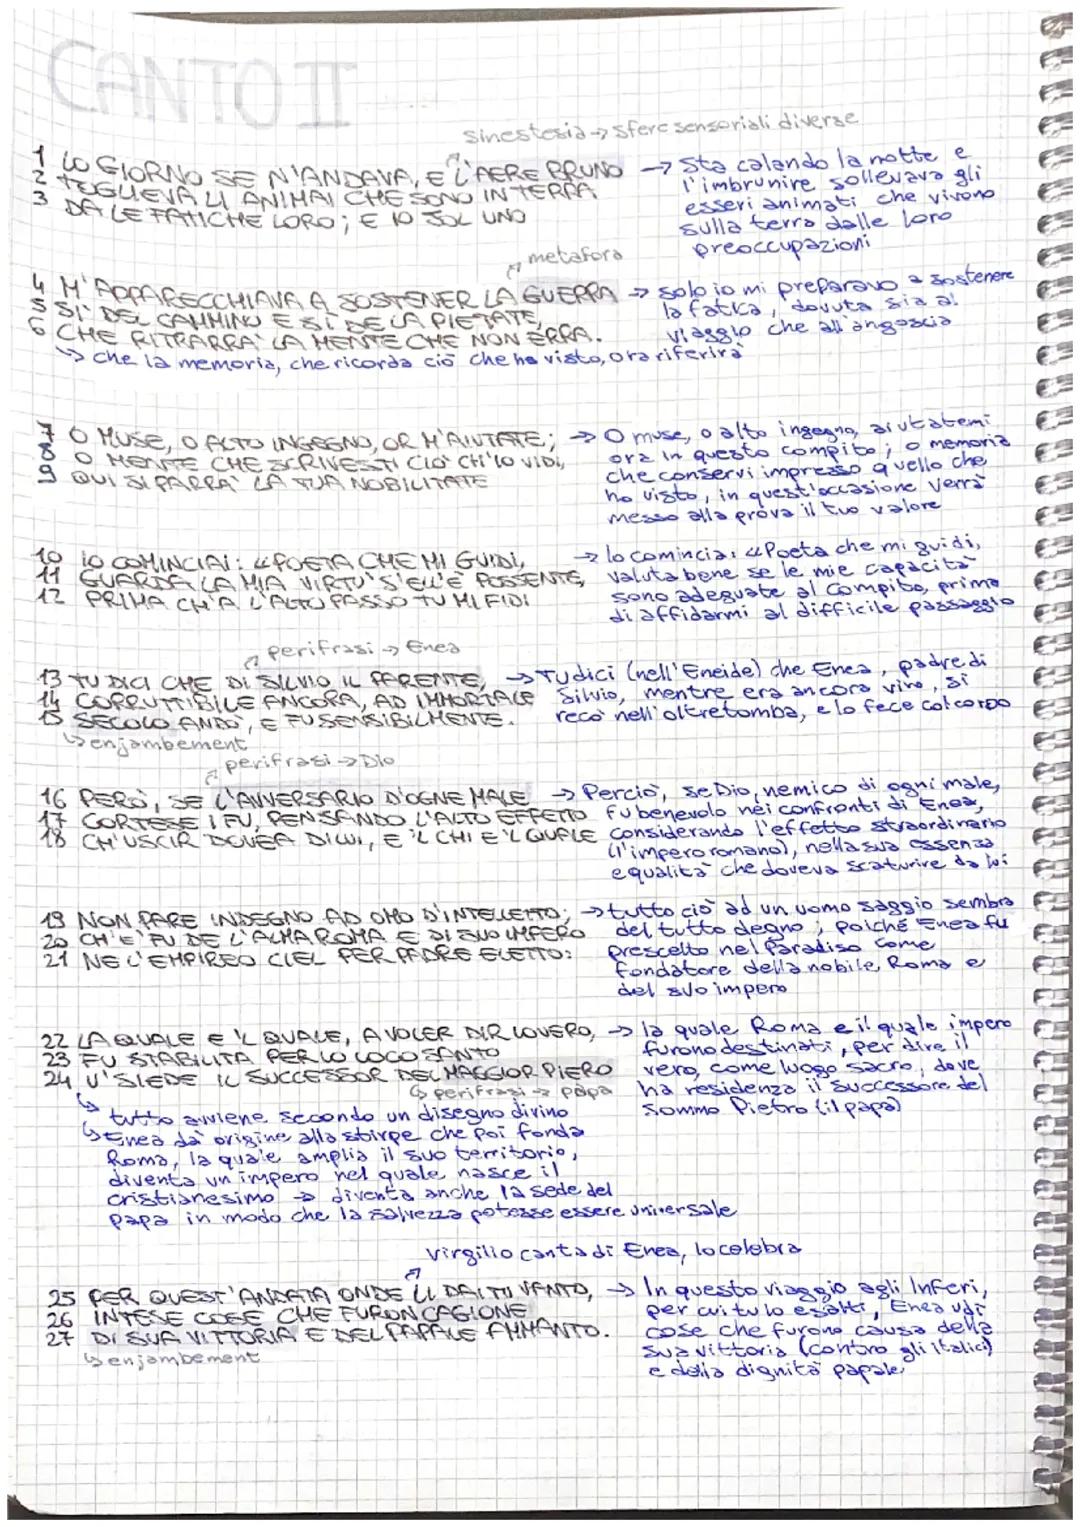 CANTO II
sinestesia → sfere sensoriali diverse
1 LO GIORNO SE N'ANDAVA, E L'AERE BRUNO → Sta calando la notte e
2 TOGLIEVA LI ANIMAI CHE SONO IN TERRA l'imbrunire sollevava gli
3 DA LE FATICHE LORO; E IO SOL UNO esseri animati che vivono
sulla terra dalle loro
preoccupazioni
metafora
4 M'APPARECCHIAVA A SOSTENER LA GUERRA → solo io mi preparavo a sostenere
5 SÌ DEL CAMMINO E SÌ DE LA PIETATE, la fatica, dovuta sia al
6 CHE RITRARRÀ LA MENTE CHE NON ERRA. viaggio che all'angoscia
↳ che la memoria, che ricorda ciò che ha visto, ora riferirà
7 O MUSE, O ALTO INGEGNO, OR M'AIUTATE; → O muse, o alto ingegno, aiutatemi
8 O MENTE CHE SCRIVESTI CIÒ CH'IO VIDI, ora in questo compito; o memoria
9 QUI SI PARRÀ LA TUA NOBILITATE che conservi impresso quello che
ho visto, in quest'occasione verrà
messo alla prova il tuo valore
10 IO COMINCIAI: «POETA CHE MI GUIDI, → Io cominciai «Poeta che mi guidi,
11 GUARDA LA MIA VIRTÙ S'ELL'È POSSENTE, valuta bene se le mie capacità
12 PRIMA CH'A L'ALTO PASSO TU MI FIDI sono adeguate al compito, prima
di affidarmi al difficile passaggio
perifrasi → Enea
13 TU DICI CHE DI SILVIO IL PARENTE, → Tu dici (nell'Eneide) che Enea, padre di
14 CORRUTTIBILE ANCORA, AD IMMORTALE Silvio, mentre era ancora vivo, si
15 SECOLO ANDÒ, E FU SENSIBILMENTE. recò nell'oltretomba, e lo fece col corpo
↳ enjambement
perifrasi → Dio
16 PERÒ, SE L'AVVERSARIO D'OGNE MALE → Perciò, se Dio, nemico di ogni male,
17 CORTESE I FU, PENSANDO L'ALTO EFFETTO fu benevolo nei confronti di Enea,
18 CH'USCIR DOVEA DI LUI, E 'L CHI E 'L QUALE considerando l'effetto straordinario
(l'impero romano), nella sua essenza
e qualità che doveva scaturire da lui
19 NON PARE INDEGNO AD OMO D'INTELLETTO; → tutto ciò ad un uomo saggio sembra
20 CH'E' FU DE L'ALMA ROMA E DI SUO IMPERO del tutto degno, poiché Enea fu
21 NE L'EMPIREO CIEL PER PADRE ELETTO: prescelto nel Paradiso come
fondatore della nobile Roma e
del suo impero
22 LA QUALE E 'L QUALE, A VOLER DIR LO VERO, → la quale Roma e il quale impero
23 FU STABILITA PER LO LOCO SANTO furono destinati, per dire il
24 U' SIEDE IL SUCCESSOR DEL MAGGIOR PIERO vero, come luogo sacro, dove
↳ perifrasi → papa ha residenza il Successore del
↳ tutto avviene secondo un disegno divino Sommo Pietro (il papa)
↳ Enea dà origine alla stirpe che poi fonda
Roma, la quale amplia il suo territorio,
diventa un impero nel quale nasce il
cristianesimo → diventa anche la sede del
papa in modo che la salvezza potesse essere universale
virgilio canta di Enea, lo celebra
25 PER QUEST'ANDATA ONDE LI DAI TU VANTO, → In questo viaggio agli Inferi,
26 INTESE COSE CHE FURON CAGIONE per cui tu lo esalti, Enea udì
27 DI SUA VITTORIA E DEL PAPALE AMMANTO. cose che furono causa della
↳ enjambement sua vittoria (contro gli italici)
e della dignità papale.